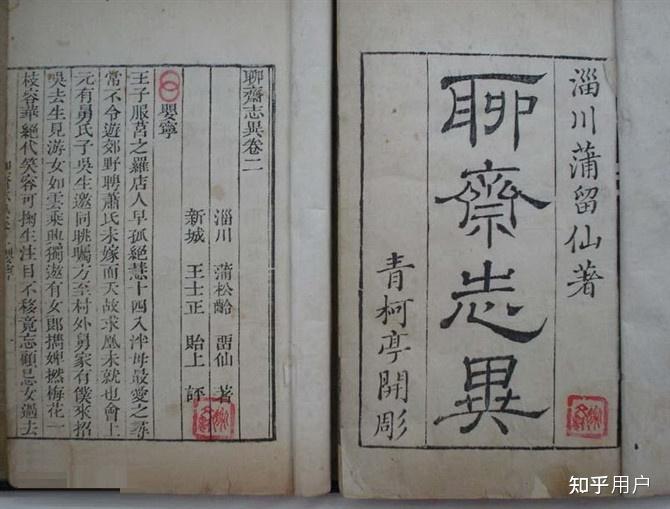 淄川蒲留仙著
聊齋志異
青柯亭開彫
聊齋志異卷二
淄川 蒲松齡 畱仙 著
新城 王士正 貽上 評
嬰寧
王子服莒之羅店人早孤絶慧十四入泮母最愛之尋
常不令遊郊野聘蕭氏未嫁而夭故求凰未就也會上
元有舅氏子吳生邀同眺矚方至村外舅家有僕來招
吳去生見游女如雲乘興獨遨有女郎攜婢撚梅花一
枝容華絶代笑容可掬生注目不移竟忘顧忌女過去
知乎用户